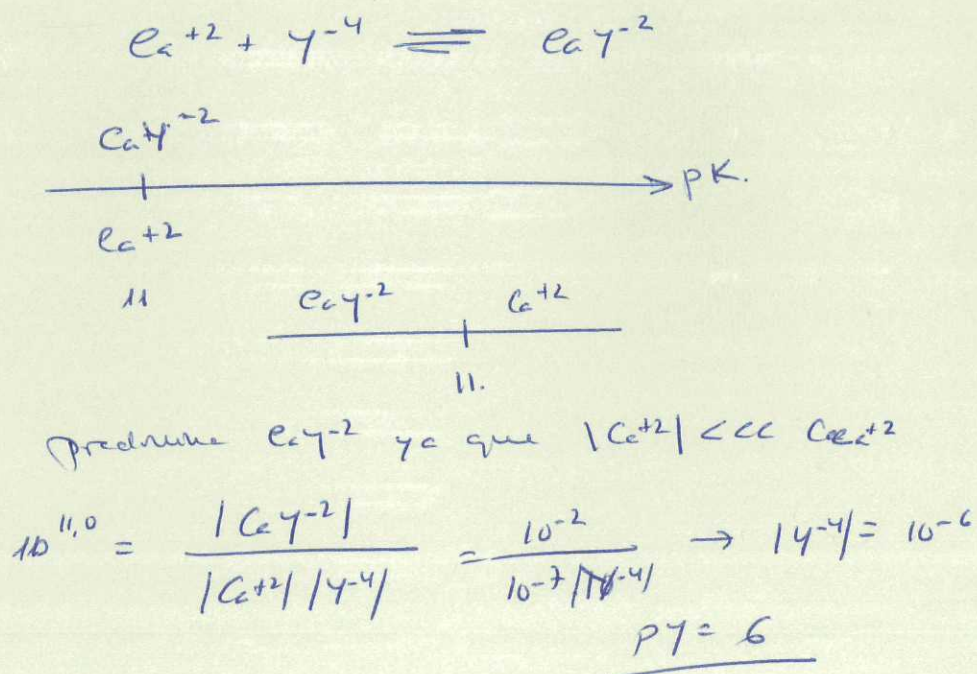 Ca+2 + Y-4 ⇌ CaY-2
CaY-2
→ pK.
Ca+2
11
CaY-2 Ca+2
11.
predomina CaY-2 ya que |Ca+2| <<< Ca+2
10^11,0 = |CaY-2| / |Ca+2| |Y-4| = 10-2 / 10-7 |Y-4| → |Y-4| = 10-6
pY = 6